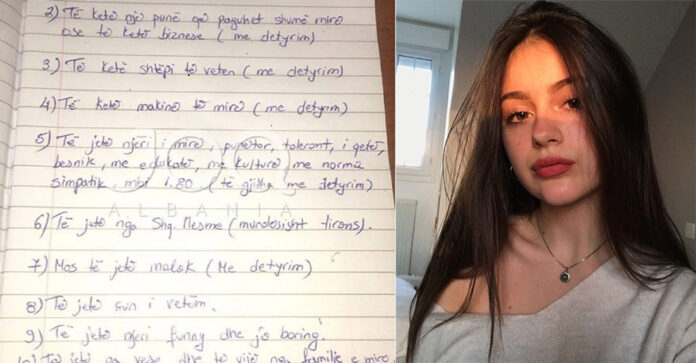 2) Të ketë një punë që paguhet shumë mirë
ose të ketë biznese (me detyrim)
3) Të ketë shtëpi të veten (me detyrim)
4) Të ketë makinë të mirë (me detyrim)
5) Të jetë njëri i mirë, punëtor, tolerant, i qetë,
besnik, me edukatë, me kulturë, me norma
simpatik, mbi 1.80 (të gjitha me detyrim)
ALBANIA
6) Të jetë nga Shq. Mesme (mundësisht tirons).
7) Mos të jetë malok (Me detyrim)
8) Të jetë sun i vetëm.
9) Të jetë njëri funny dhe jo boring.
Të jetë pa vese dhe të vijë nga familje e mirë